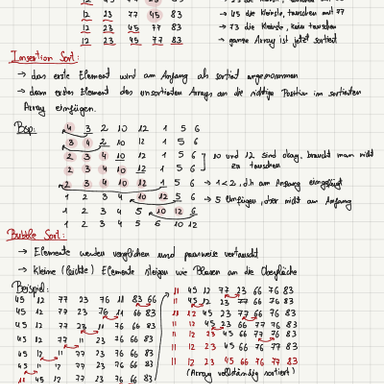 12 23 77 45 83
→ 45 die kleinste, tauschen mit 77
12 23 45 77 83
→ 73 die kleinste, kein tauschen
12 23 45 77 83
→ ganze Array ist jetzt sortiert
Insertion Sort:
→ das erste Element wird am Anfang als sortiert angenommen
→ dann erstes Element des unsortierten Arrays an die richtige Position im sortierten
Array einfügen.
Bsp: 4 3 2 10 12 1 5 6
3 4 2 10 12 1 5 6
2 3 4 10 12 1 5 6
10 und 12 sind okay, braucht man nicht
2 3 4 10 12 1 5 6
zu tauschen
2 3 4 10 12 1 5 6 → 1<2, d.h am Anfang eingefügt
1 2 3 4 10 12 5 6 → 5 Einfügen, aber nicht am Anfang
1 2 3 4 5 10 12 6
1 2 3 4 5 6 10 12
Bubble Sort:
→ Elemente werden verglichen und paarweise vertauscht
→ Kleine (leichte) Elemente steigen wie Blasen an die Oberfläche
Beispiel:
45 12 77 23 76 11 83 66
45 12 77 23 76 11 66 83
45 12 77 23 11 76 66 83
45 12 77 11 23 76 66 83
45 12 11 77 23 76 66 83
45 11 12 77 23 76 66 83
11 45 12 77 23 76 66 83
11 45 12 77 23 66 76 83
11 45 12 23 77 66 76 83
11 12 45 23 77 66 76 83
11 12 45 23 66 77 76 83
11 12 23 45 66 77 76 83
11 12 23 45 66 76 77 83
(Array vollständig sortiert)